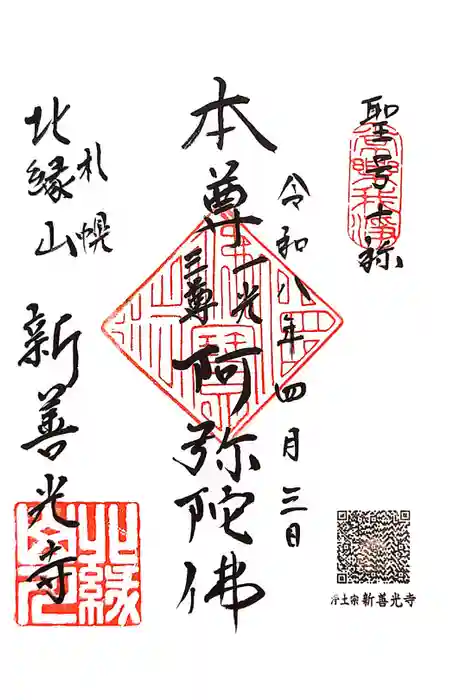 聖号十称
令和八年四月三日
本尊 一光三尊 阿弥陀佛
札幌
北縁山 新善光寺
北縁
浄土宗 新善光寺